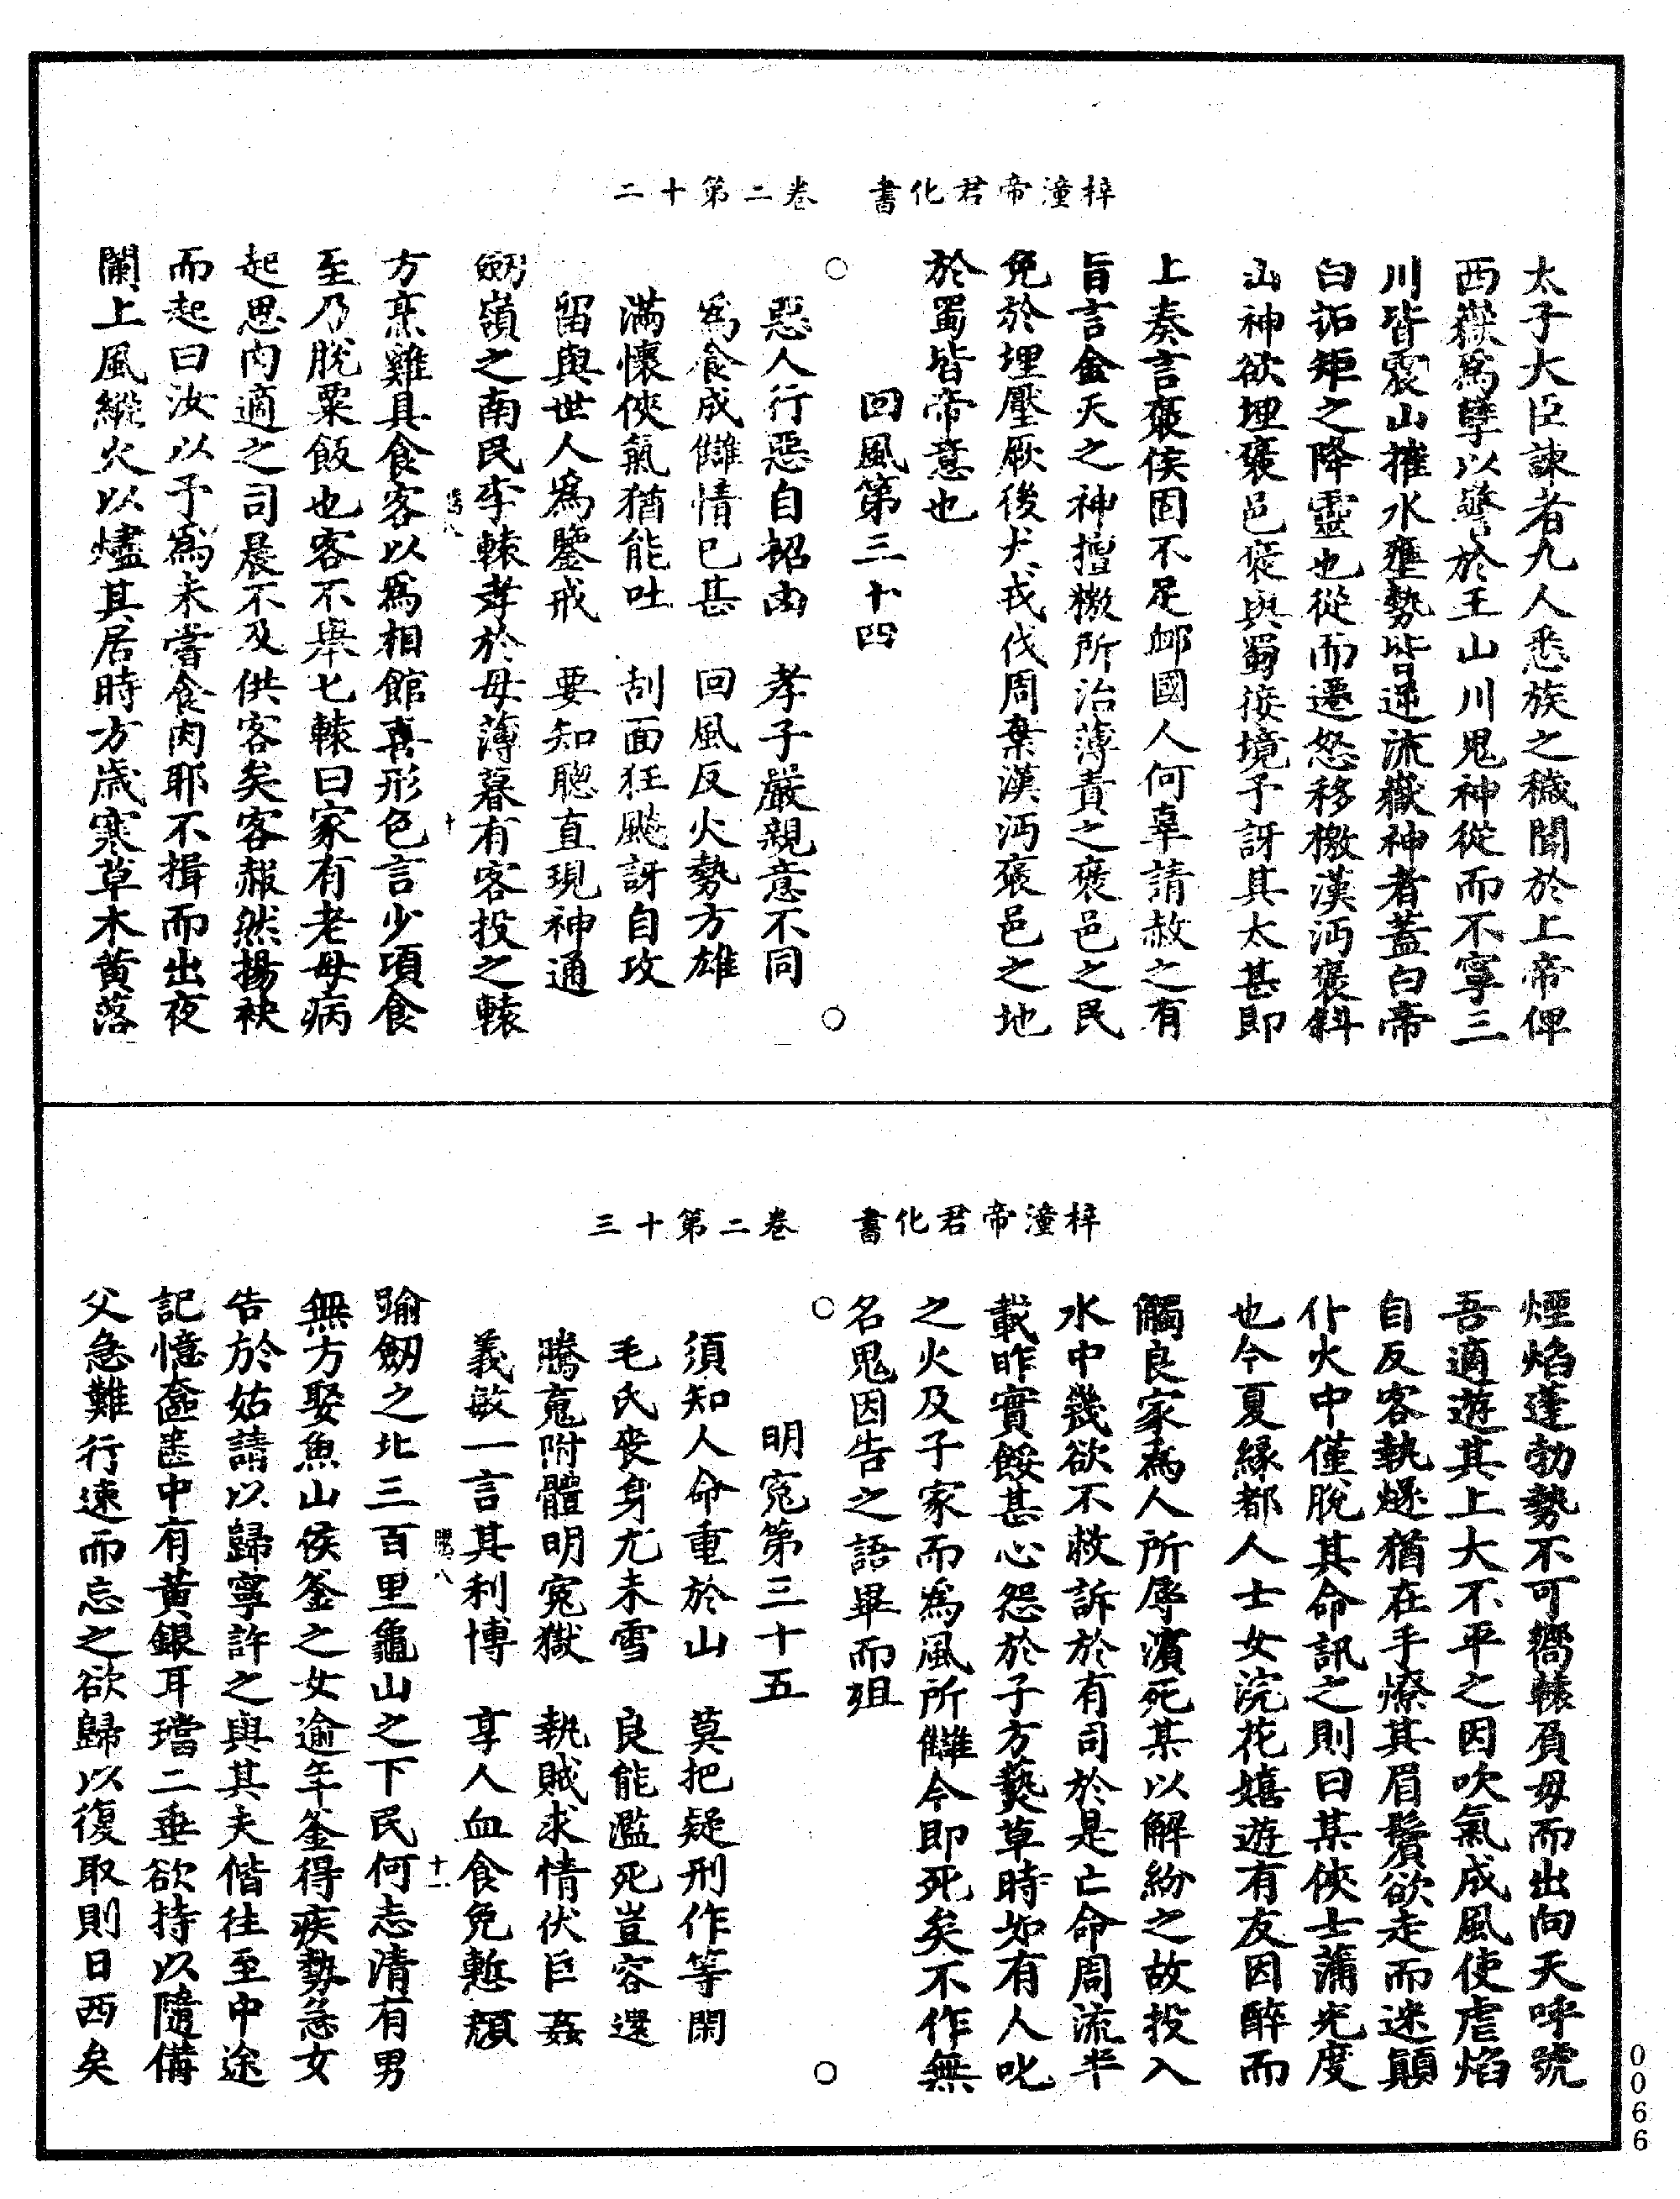 梓潼帝君化書　卷二第十二
太子大臣諫者九人悉族之穢聞於上帝俾
西嶽為孽以警於王山川鬼神從而不寧三
川皆震山摧水壅勢皆逆流嶽神者蓋白帝
白招矩之降靈也從而遷怒移檄漢沔褒斜
山神欲埋褒邑褒與蜀接境予訝其太甚即
上奏言褒侯固不足卹國人何辜請赦之有
旨言金天之神擅檄所治薄責之褒邑之民
免於埋壓厥後犬戎伐周棄漢沔褒邑之地
於蜀皆帝意也
○　回風第三十四　○
惡人行惡自招凶　孝子嚴親意不同
為食成讎情已甚　回風反火勢方雄
滿懷俠氣猶能吐　刮面狂飈訝自攻
留與世人為鑒戒　要知聰直現神通
劒嶺之南民李轅孝於母薄暮有客投之轅
方烹雞具食客以為相館喜形色言少頃食
至乃脫粟飯也客不舉匕轅曰家有老母病
起思肉適之司晨不及供客矣客赧然揚袂
而起曰汝以予為未嘗食肉耶不揖而出夜
闌上風縱火以燼其居時方歲寒草木黃落
十
梓潼帝君化書　卷二第十三
煙焰蓬勃勢不可嚮轅負母而出向天呼號
吾適遊其上大不平之因吹氣成風使虐焰
自反客執燧猶在手燎其眉鬢欲走而迷顛
仆火中僅脫其命訊之則曰某俠士蒲光度
也今夏緣都人士女浣花嬉遊有友因醉而
觸良家為人所辱濱死某以解紛之故投入
水中幾欲不救訴於有司於是亡命周流半
載昨實餒甚心怨於子方爇草時如有人叱
之火及子家而為風所讎今即死矣不作無
名鬼因告之語畢而殂
○　明冤第三十五　○
須知人命重於山　莫把疑刑作等閑
毛氏喪身尤未雪　良能濫死豈容還
騰䰟附體明冤獄　執賊求情伏巨姦
義敏一言其利博　享人血食免慙顏
踰劒之北三百里龜山之下民何志清有男
無方娶魚山侯釜之女逾年釜得疾勢急女
告於姑請以歸寧許之與其夫偕往至中途
記憶奩匳中有黃銀耳璫二垂欲持以隨備
父急難行速而忘之欲歸以復取則日西矣
騰八
十一
0066